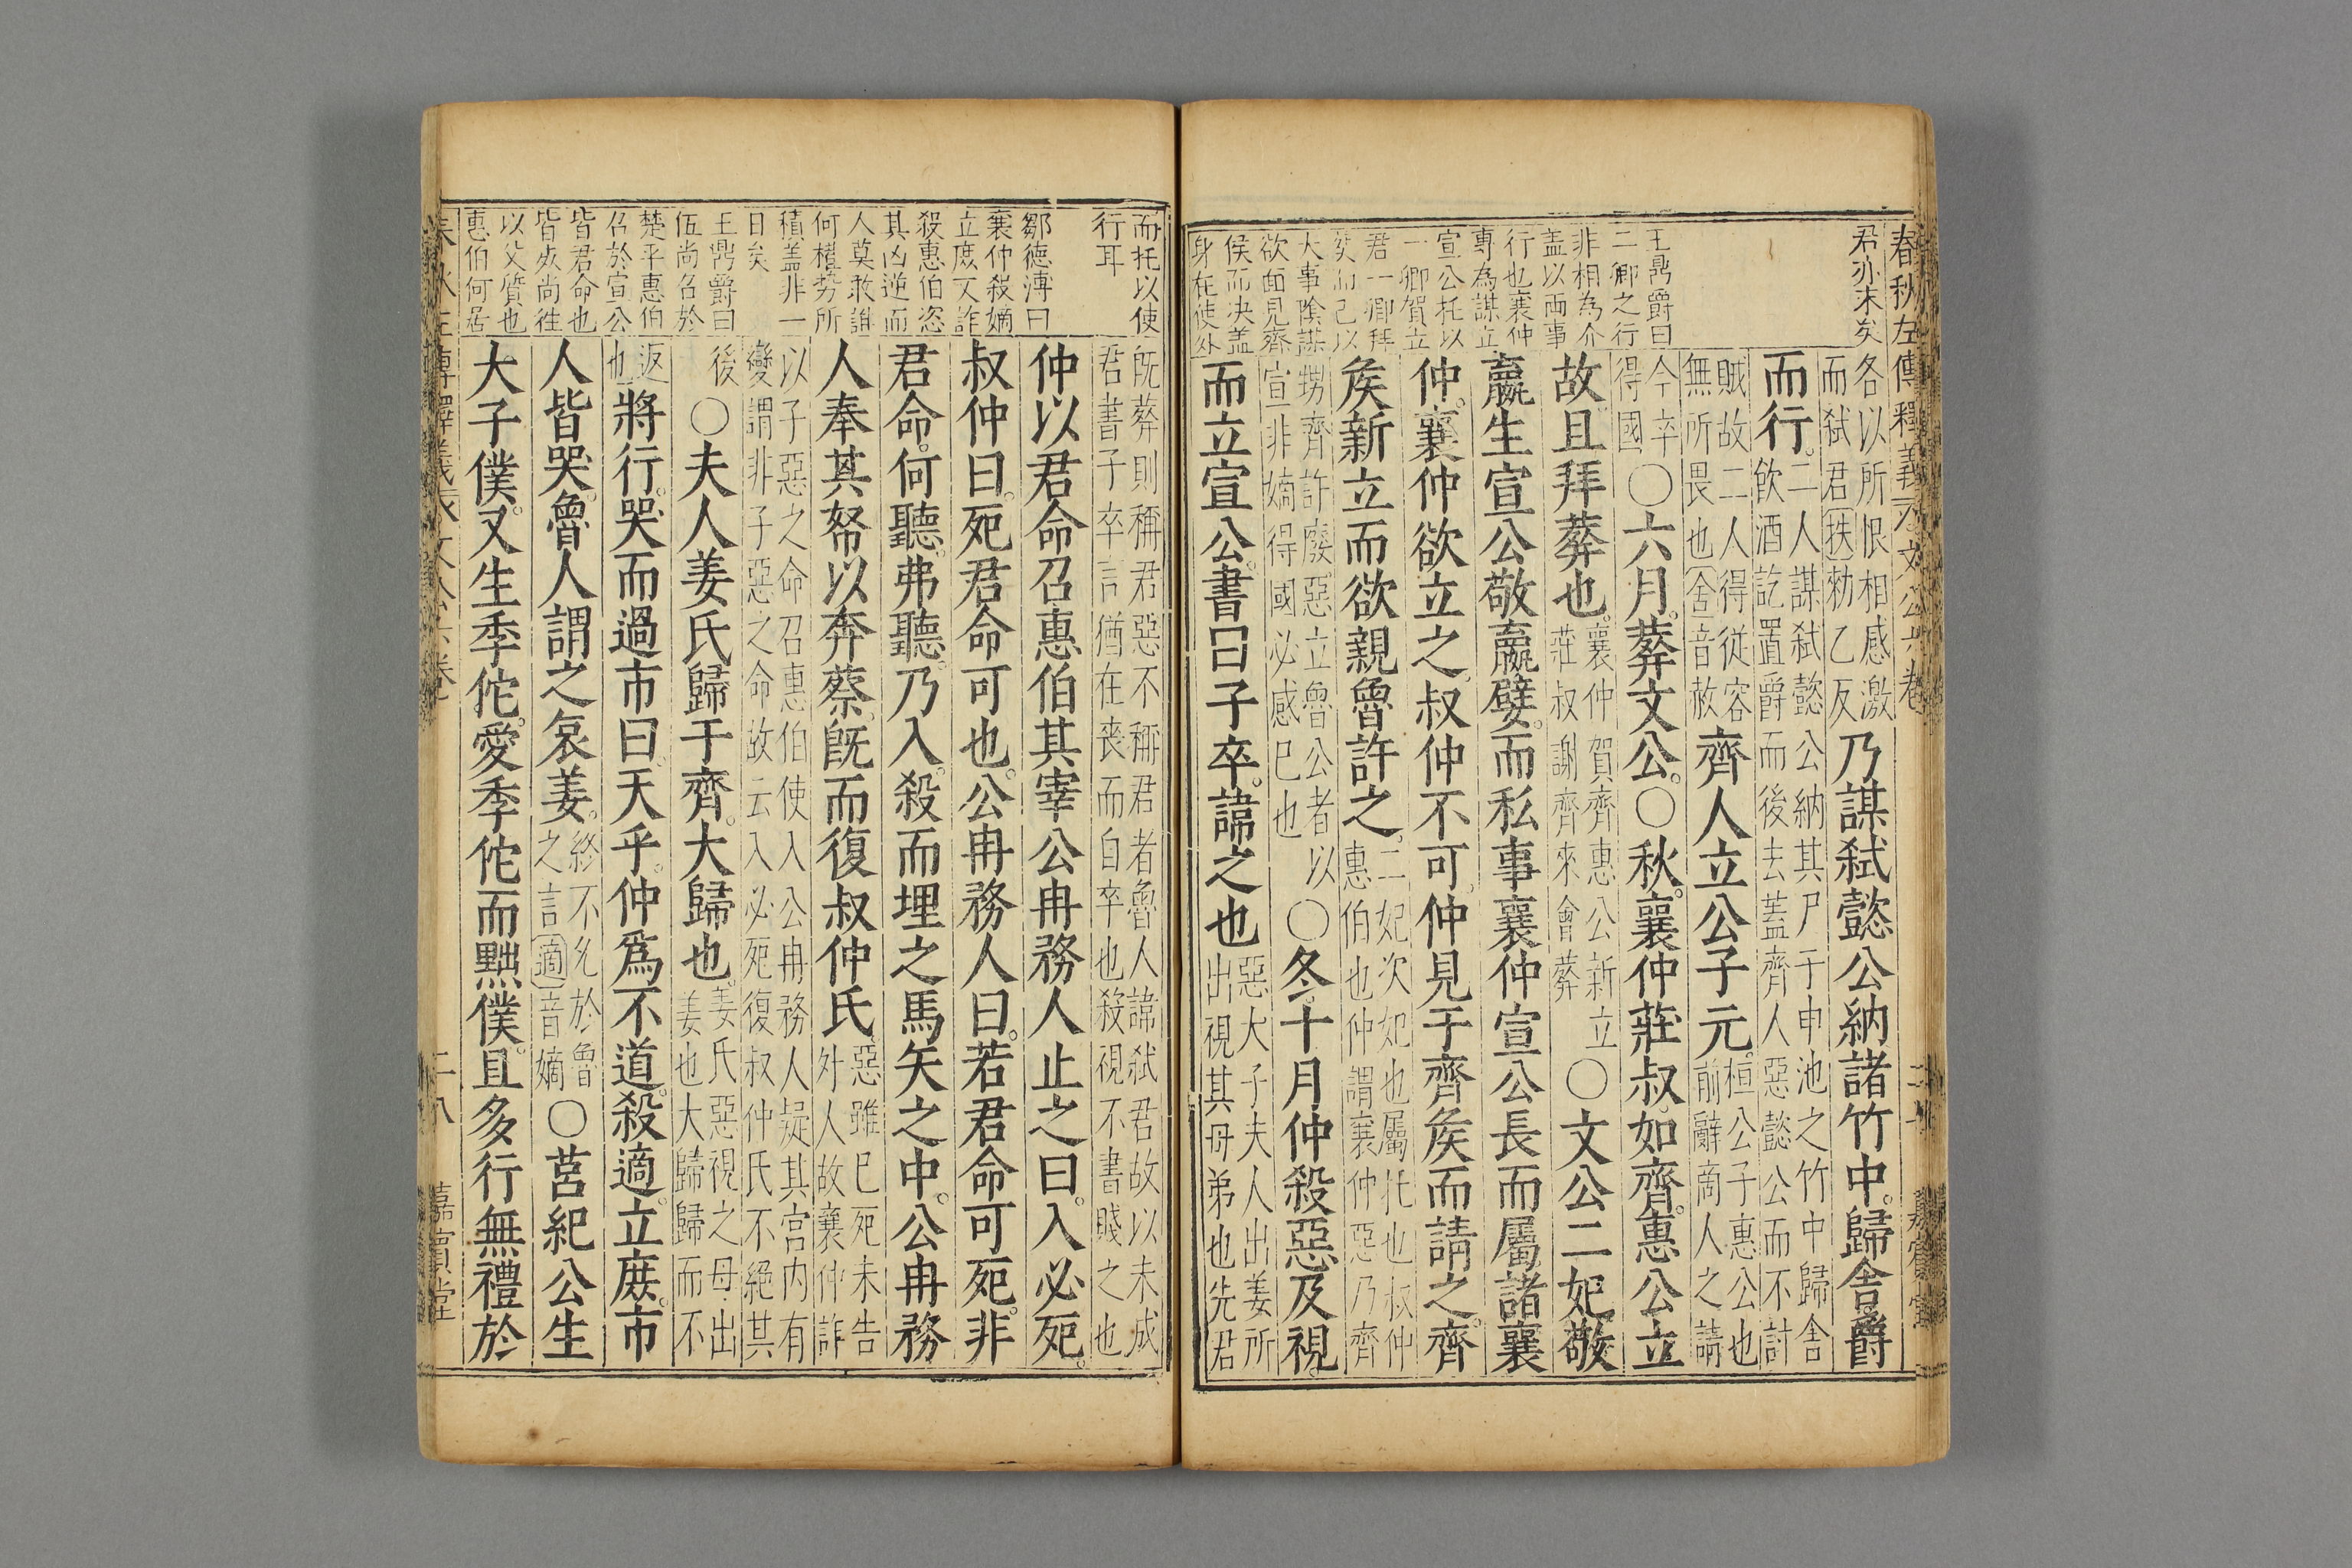 春秋左傳釋義
君亦末矣
王鼎爵曰
二卿之行
非相為介
蓋以兩事
行也襄仲
專為謀立
宣公托以
一卿賀立
君一卿拜
大事陰謀
欲面見齊
侯而決蓋
身在使外
各以所恨相感激
而弒君抶勑乙反
乃謀弒懿公納諸竹中歸舍爵
而行
二人謀弒懿公納其尸于申池之竹中歸舍
飲酒訖置爵而後去蓋齊人惡懿公而不討
賊故二人得從容
無所畏也舍音赦
齊人立公子元
桓公子惠公也
前辭商人之請
今卒
得國
○六月葬文公○秋襄仲莊叔如齊惠公立
故且拜葬也
襄仲賀齊惠公新立
莊叔謝齊來會葬
○文公二妃敬
嬴生宣公敬嬴嬖而私事襄仲宣公長而屬諸襄
仲襄仲欲立之叔仲不可仲見于齊矦而請之齊
矦新立而欲親魯許之
二妃次妃也屬托也叔仲
惠伯也仲謂襄仲惡乃齊
甥齊許廢惡立魯公者以
宣非嫡得國必感已也
○冬十月仲殺惡及視
而立宣公書曰子卒諱之也
惡大子夫人出姜所
出視其母弟也先君
而托以使
行耳
鄒德溥曰
襄仲殺嫡
立庶又詐
殺惠伯恣
其凶逆而
人莫敢誰
何權勢所
積蓋非一
日矣
王鼎爵曰
伍尚召於
楚平惠伯
召於宣公
皆君命也
皆必尚徃
以父質也
惠伯何居
既葬則稱君惡不稱君者魯人諱弒君故以未成
君書子卒言猶在喪而自卒也殺視不書賤之也
仲以君命召惠伯其宰公冉務人止之曰入必死
叔仲曰死君命可也公冉務人曰若君命可死非
君命何聽弗聽乃入殺而埋之馬矢之中公冉務
人奉其帑以奔蔡既而復叔仲氏
惡雖巳死未告
外人故襄仲詐
以子惡之命召惠伯使入公冉務人疑其宮内有
變謂非子惡之命故云入必死復叔仲氏不絕其
後
○夫人姜氏歸于齊大歸也
姜氏惡視之母出
姜也大歸歸而不
返
也
將行哭而過市曰天乎仲爲不道殺適立庶市
人皆哭魯人謂之哀姜
終不允於魯
之言適音嫡
○莒紀公生
大子僕又生季佗愛季佗而黜僕且多行無禮於
二十八
嘉賓堂